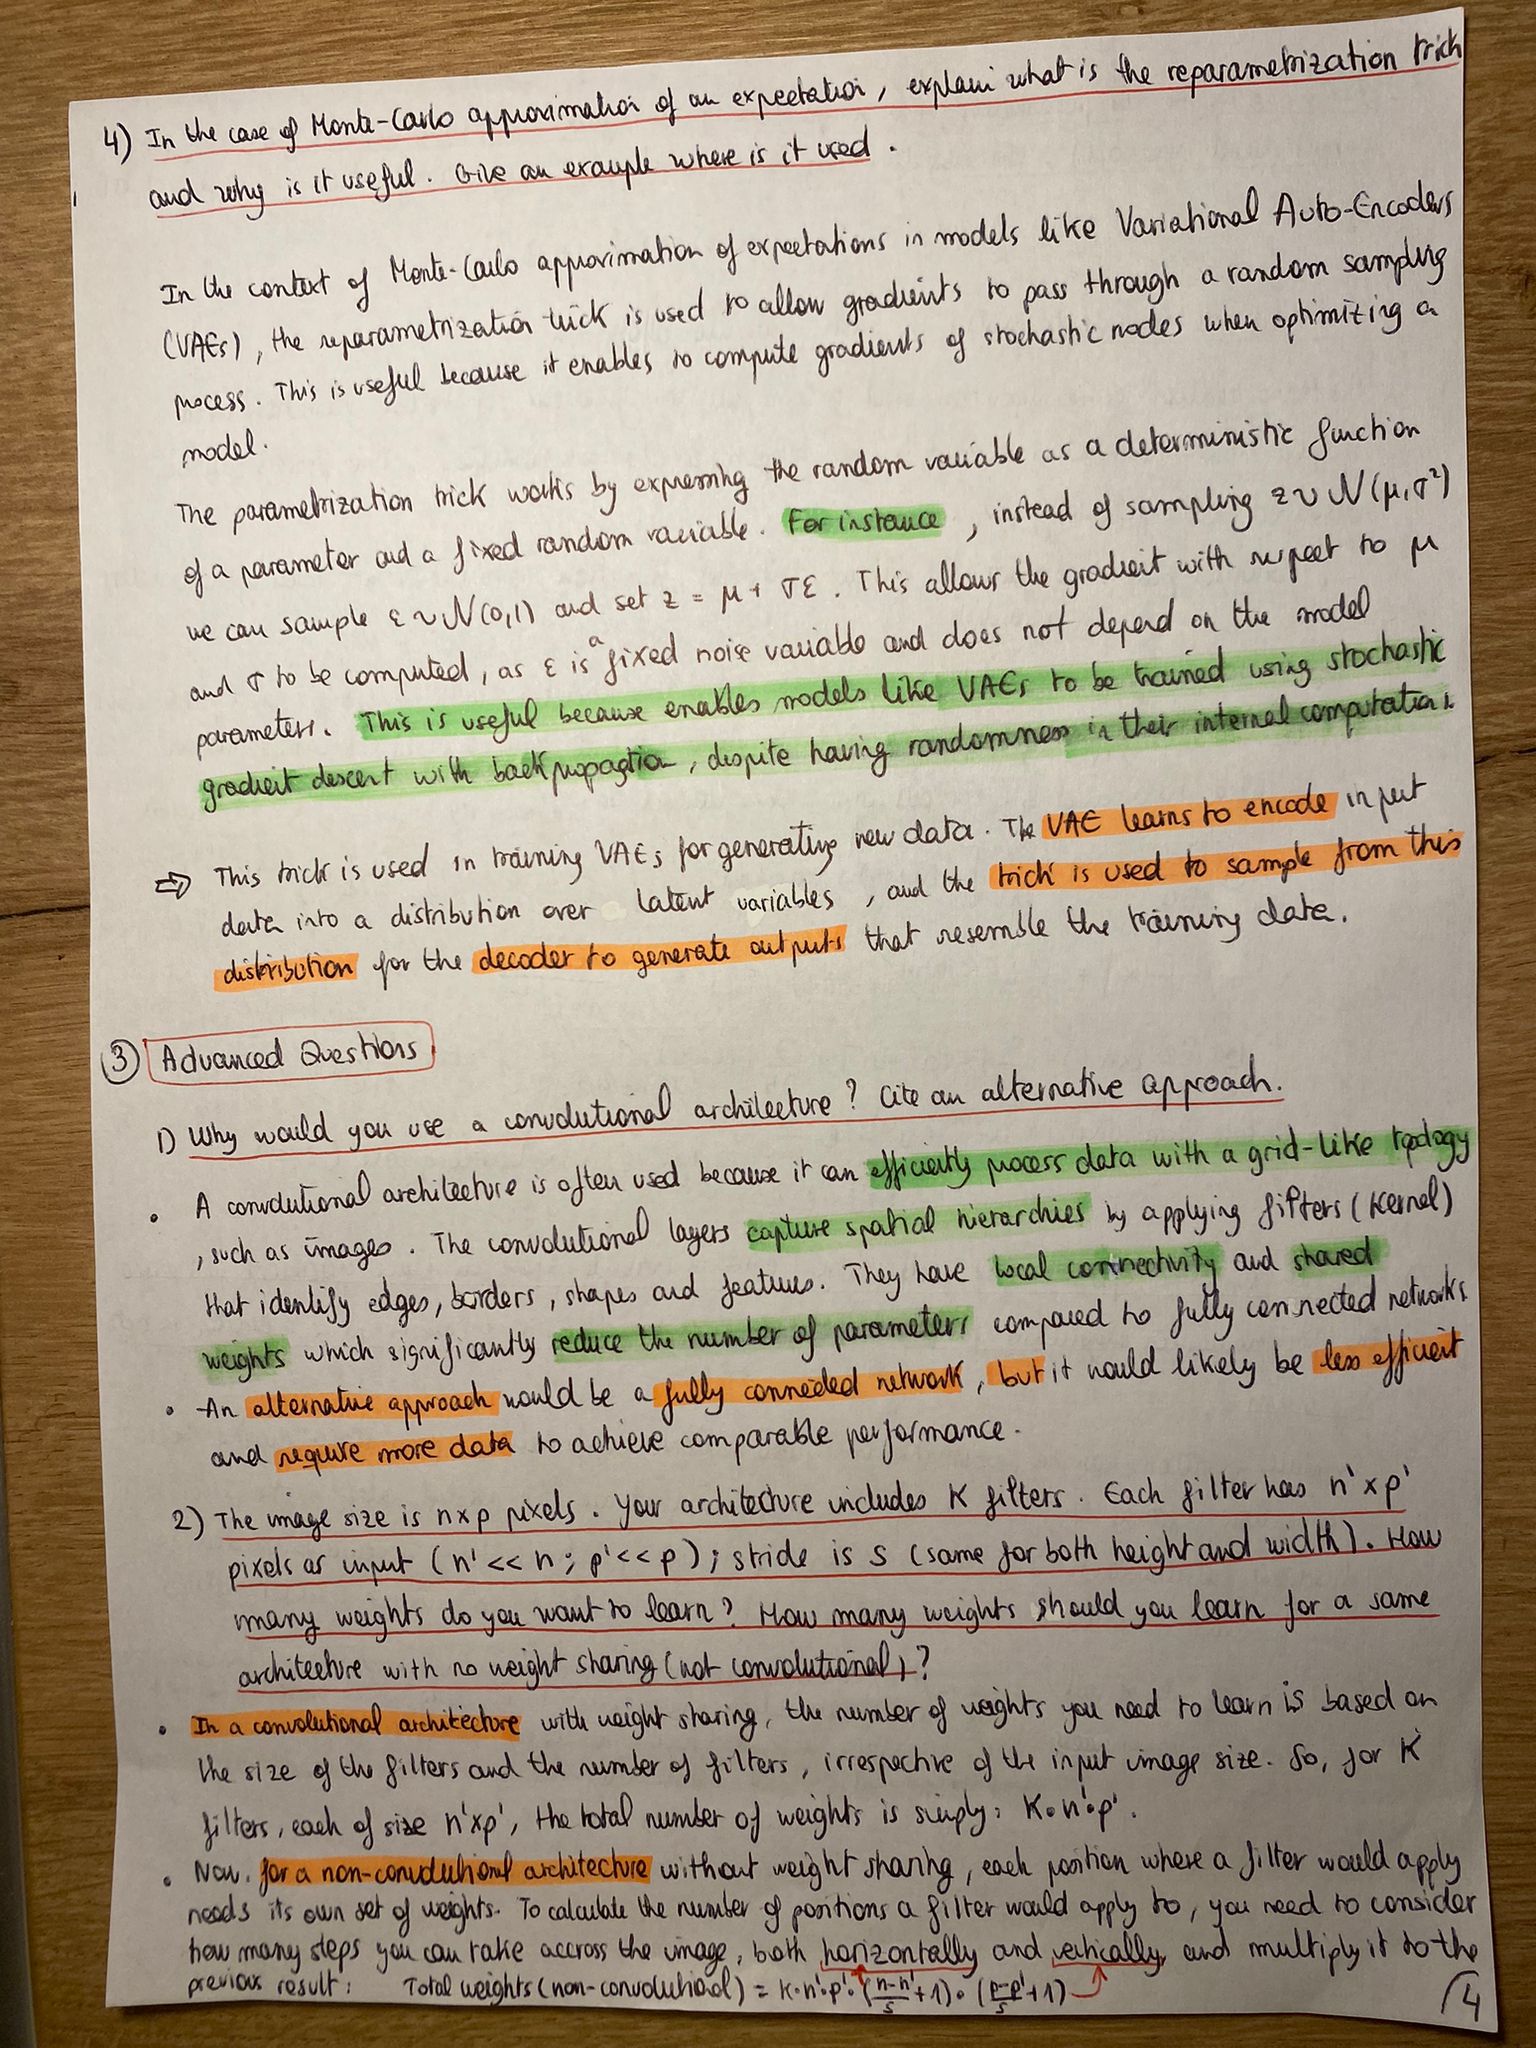 4) In the case of Monte-Carlo approximation of an expectation, explain what is the reparametrization trick
and why is it useful. Give an example where is it used.
In the context of Monte-Carlo approximation of expectations in models like Variational Auto-Encoders
(VAEs), the reparametrization trick is used to allow gradients to pass through a random sampling
process. This is useful because it enables to compute gradients of stochastic nodes when optimizing a
model.
The parametrization trick works by expressing the random variable as a deterministic function
of a parameter and a fixed random variable. For instance, instead of sampling z ~ N(μ, σ²)
we can sample ε ~ N(0,1) and set z = μ + σε. This allows the gradient with respect to μ
and σ to be computed, as ε is a fixed noise variable and does not depend on the model
parameters. This is useful because enables models like VAEs to be trained using stochastic
gradient descent with backpropagation, despite having randomness in their internal computations.
⇒ This trick is used in training VAEs for generating new data. The VAE learns to encode input
data into a distribution over latent variables, and the trick is used to sample from this
distribution for the decoder to generate outputs that resemble the training data.
③ Advanced Questions
1) Why would you use a convolutional architecture? Cite an alternative approach.
• A convolutional architecture is often used because it can efficiently process data with a grid-like topology
, such as images. The convolutional layers capture spatial hierarchies by applying filters (Kernel)
that identify edges, borders, shapes and features. They have local connectivity and shared
weights which significantly reduce the number of parameters compared to fully connected networks.
• An alternative approach would be a fully connected network, but it would likely be less efficient
and require more data to achieve comparable performance.
2) The image size is n×p pixels. Your architecture includes K filters. Each filter has n'×p'
pixels as input (n' << n ; p' << p) ; stride is S (same for both height and width). How
many weights do you want to learn? How many weights should you learn for a same
architecture with no weight sharing (not convolutional)?
• In a convolutional architecture with weight sharing, the number of weights you need to learn is based on
the size of the filters and the number of filters, irrespective of the input image size. So, for K
filters, each of size n'×p', the total number of weights is simply: K•n'•p'.
• Now, for a non-convolutional architecture without weight sharing, each position where a filter would apply
needs its own set of weights. To calculate the number of positions a filter would apply to, you need to consider
how many steps you can take accross the image, both horizontally and vertically and multiply it to the
previous result: Total weights (non-convolutional) = K•n'•p'•((n-n')/s +1)•((p-p')/s +1)
4